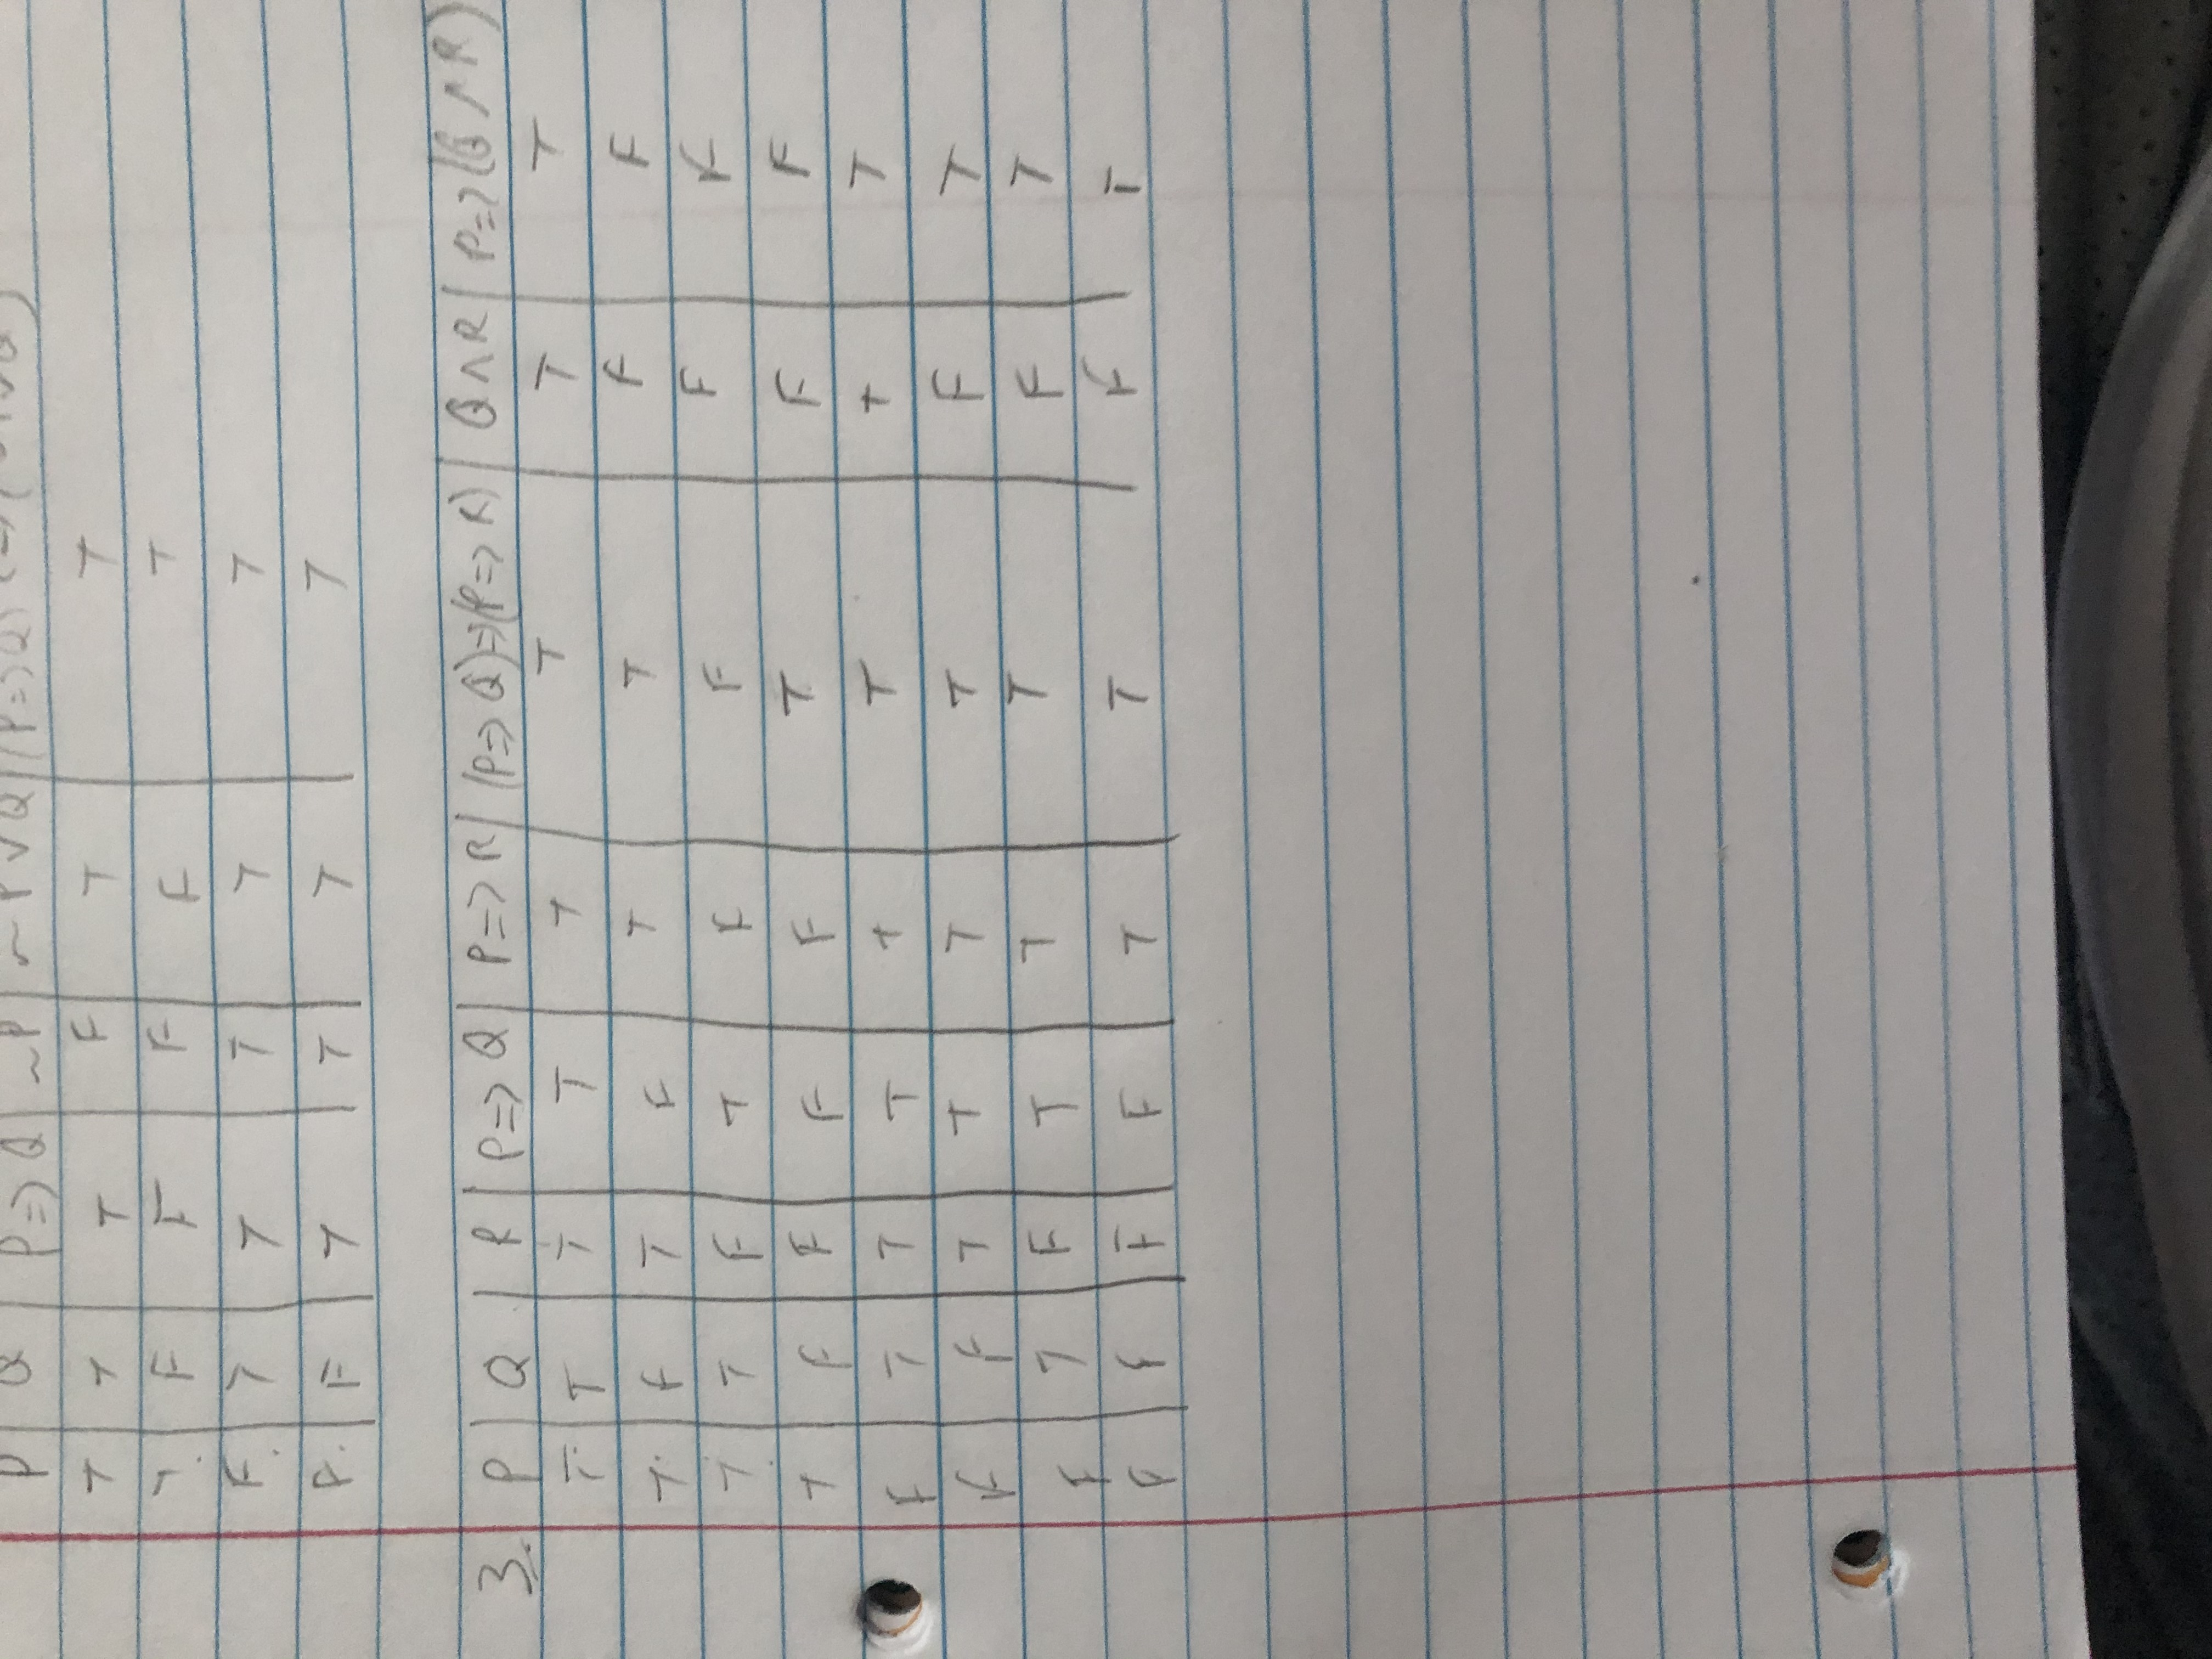 P | Q | P => Q | ~P | ~P ∨ Q | (P => Q)
T | T | T | F | T | T
T. | F | F | F | F | T
F. | T | T | T | T | T
F. | F | T | T | T | T
3. P | Q | R | P => Q | P => R | (P => Q) => (P => R) | Q ∧ R | P => (Q ∧ R)
T | T | T | T | T | T | T | T
T | F | T | F | T | T | F | F
T | T | F | T | F | F | F | F
T | F | F | F | F | T | F | F
F | T | T | T | T | T | T | T
F | F | T | T | T | T | F | T
F | T | F | T | T | T | F | T
F | F | F | F | T | T | F | T